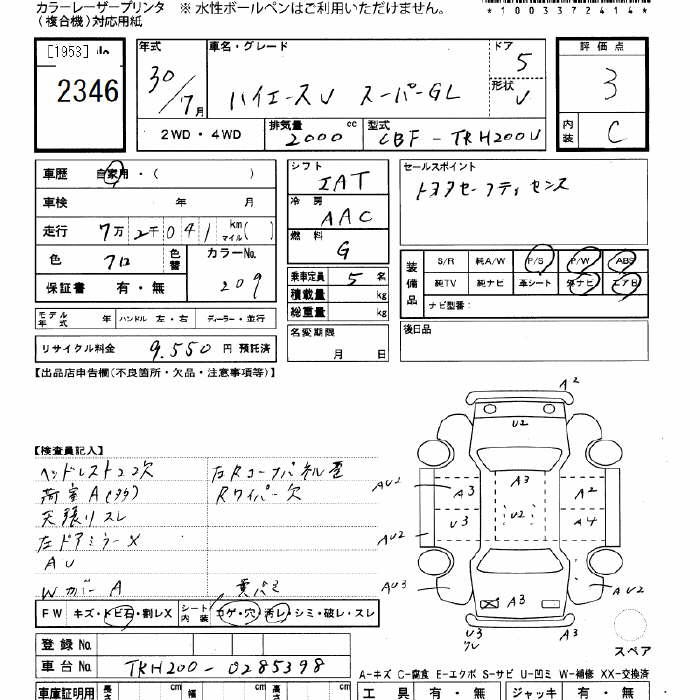 カラーレーザープリンタ ※ 水性ボールペンはご利用いただけません。
(複合機)対応用紙
*1003372414*
[1953]
2346
年式 30/7月
車名・グレード ハイエースV スーパーGL
ドア 5
形状 V
評価点 3
内装 C
2WD・4WD
排気量 2000 cc
型式 CBF-TRH200V
車歴 自家用・( )
車検 年 月
走行 7万2千041 km マイル( )
色 クロ 色替 カラーNo. 209
保証書 有・無
モデル年式 年 ハンドル 左・右 ディーラー・並行
リサイクル料金 9,550 円 預託済
シフト IAT
冷房 AAC
燃料 G
乗車定員 5 名
積載量 kg
総重量 kg
名変期限 月 日
セールスポイント
トヨタセーフティセンス
装備品 S/R 純A/W P/S P/W ABS
純TV 純ナビ 革シート 外ナビ エアB
ナビ型番:
後日品
【出品店申告欄(不良箇所・欠品・注意事項等)】
【検査員記入】
ヘッドレスト2コ欠 左Rコーナーパネル歪
荷室A(タタ) Rワイパー欠
天張りスレ
左ドアミラーX
AU
Wカバー A
FW キズ・トビ石・割レX シート内装 コゲ・穴・汚レ・シミ・破レ・スレ
登録 No.
車台 No. TRH200-0285398
車庫証明用 長さ cm 幅 cm 高さ cm
A2
U2
AU2 A3 A3 A2
U3 U2 A4
AU2
AU3 A3 AU2
U3
スペア
A-キズ C-腐食 E-エクボ S-サビ U-凹ミ W-補修 XX-交換済
工具 有・無 ジャッキ 有・無